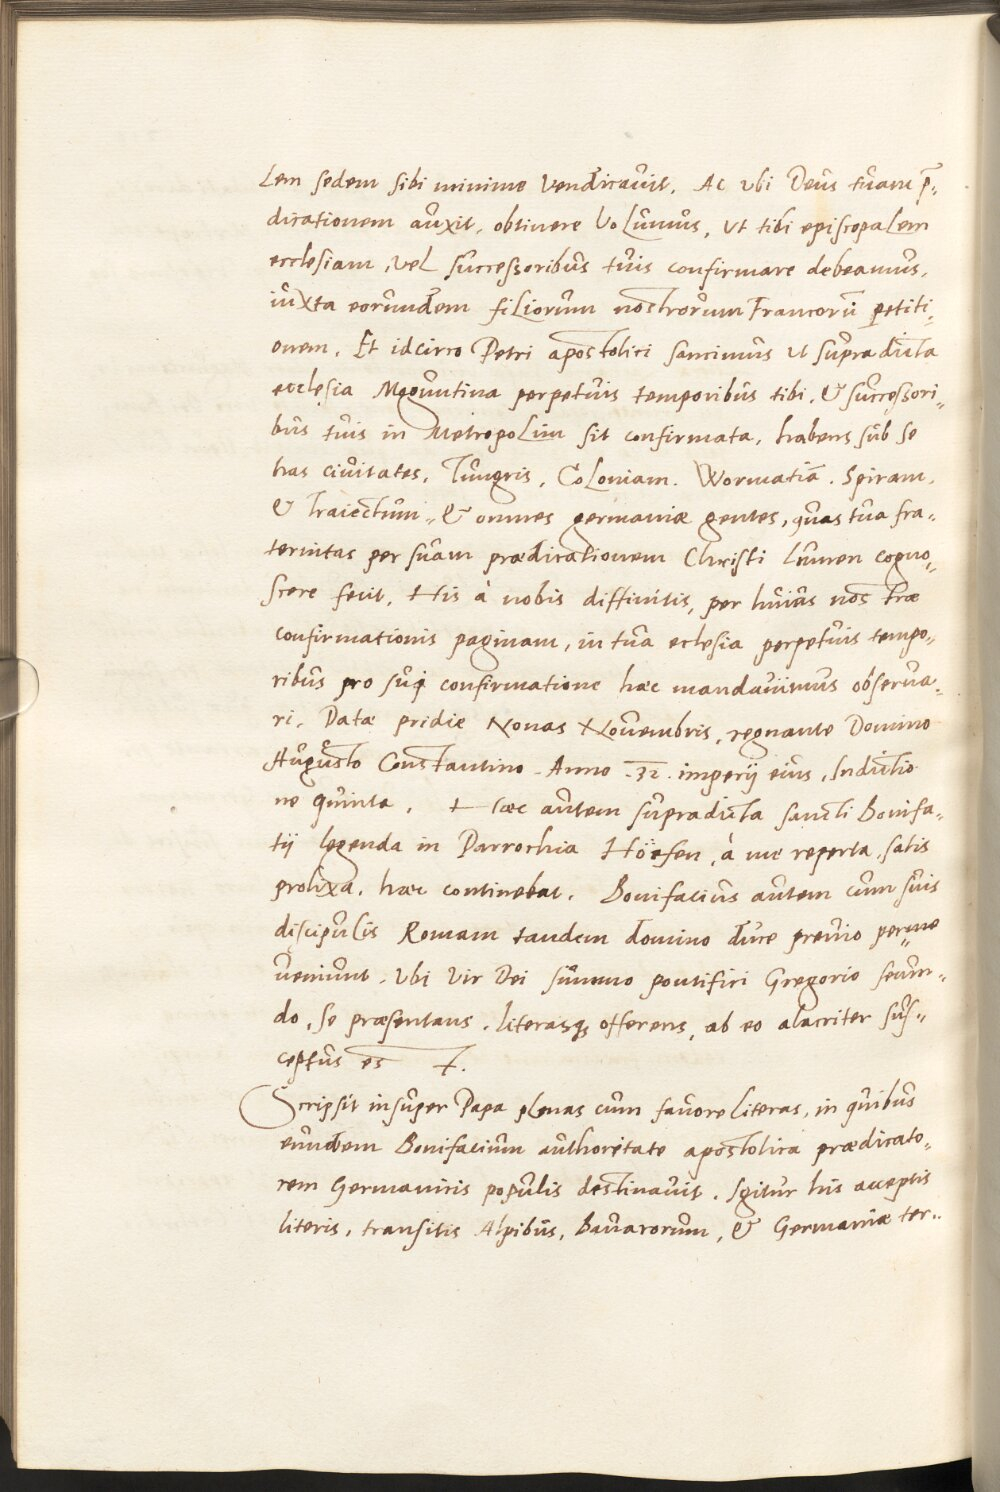 lem sedem sibi minime Vendicavit. Ac ubi Deus tuam p̃=
dicationem auxit, obtinere Volumus, ut tibi episcopalem
ecclesiam, vel successoribus tuis confirmare debeamus,
iuxta eorundem filiorum nostrorum Francorũ petiti=
onem. Et idcirco Petri apostolici sancimus ut supra dicta
ecclesia Moguntina perpetuis temporibus tibi, & successori=
bus tuis in Metropolim sit confirmata, habens sub se
has civitates. Tungris, Coloniam. Wormatiã. Spiram,
& Traiectum, & omnes germaniæ gentes, quas tua fra=
ternitas per suam prædicationem Christi lumen cogno=
scere fecit. His à nobis diffinitis, per huius nostræ
confirmationis paginam, in tua eclesia perpetuis tempo=
ribus pro sui confirmatione hæc mandavimus observa=
ri. Datæ pridie Nonas Novembris, regnante Domino
Augusto Constantino. Anno .32. imperij eius, Indictio
ne quinta. Hæc autem supradicta sancti Bonifa=
tij legenda in Parrochia Höefen, à me reperta, satis
prolixa. hæc continebat. Bonifacius autem cum suis
discipulis Romam tandem domino duce previo perme
veniunt. Ubi Vir Dei summo pontifici Gregorio secun=
do, se præsentans, literasq; offerens, ab eo alacriter sus=
ceptus es t.
Scripsit insuper Papa plenas cum favore literas, in quibus
eundem Bonifacium authoritate apostolica prædicato=
rem Germanicis populis destinavit. Igitur his acceptis
literis, transitis Alpibus, Bavarorum, & Germaniæ ter=